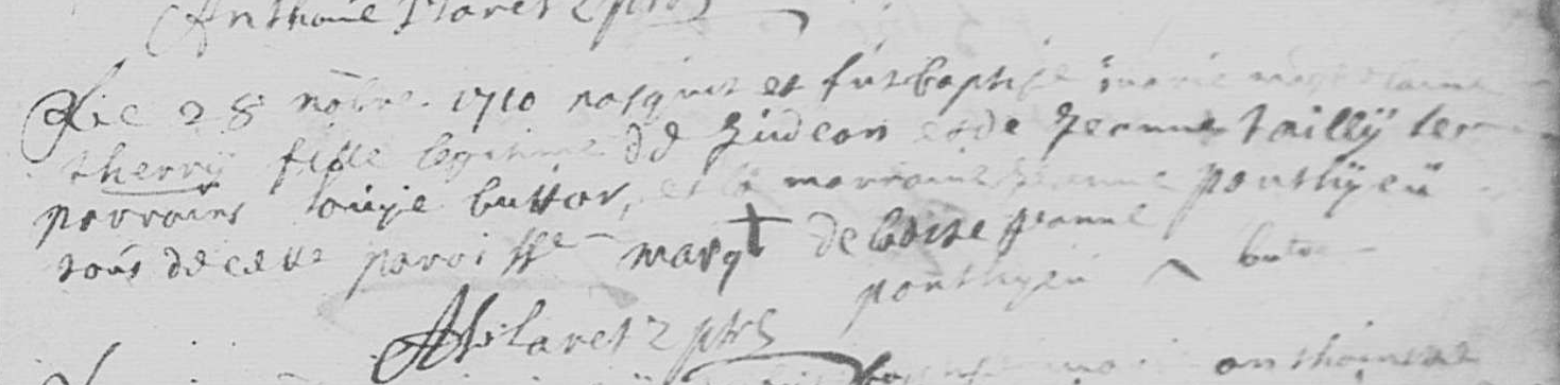 Anthoine Claret ptre
Le 28 nobre 1710 nasquit et fut baptise marie magdelaine
therry fille legitime de Gideon et de Jeanne tailly les
parrains louije buttor, et la marraine Jeanne ponthyeu
tous de cette paroisse marq de Loise Jeanne
ponthyeu butor
A Claret ptre